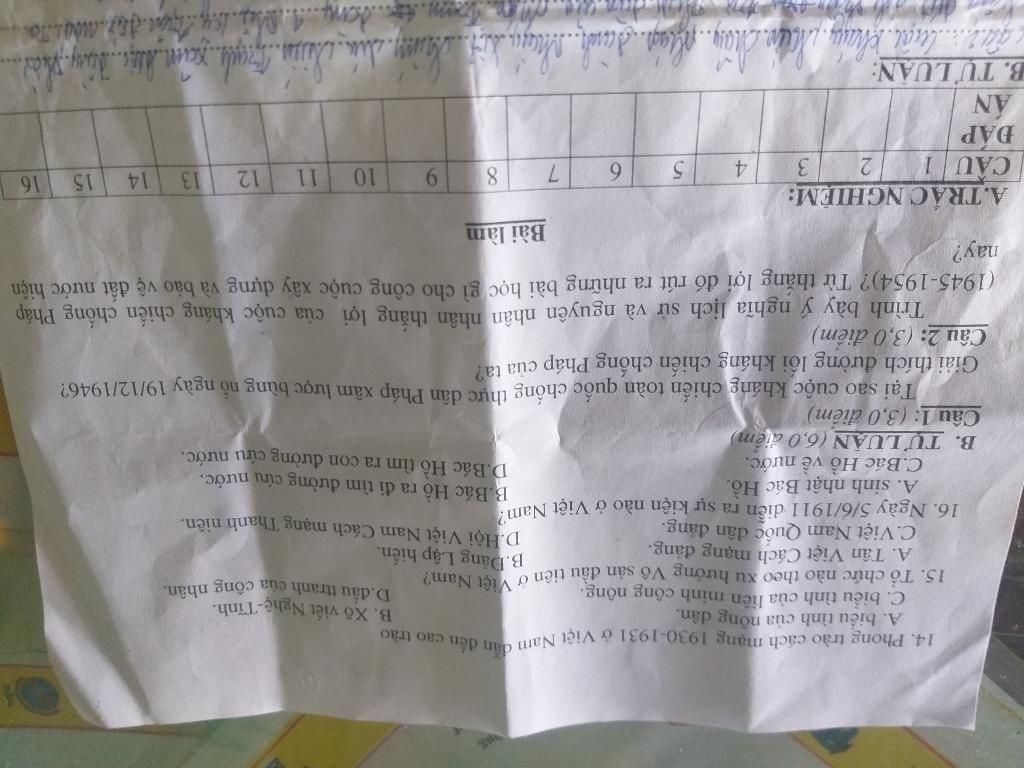 14. Phong trào cách mạng 1930-1931 ở Việt Nam dẫn đến cao trào
A. biểu tình của nông dân. B. Xô viết Nghệ-Tĩnh.
C. biểu tình của liên minh công nông. D.đấu tranh của công nhân.
15. Tổ chức nào theo xu hướng Vô sản đầu tiên ở Việt Nam?
A. Tân Việt Cách mạng đảng. B.Đảng Lập hiến.
C.Việt Nam Quốc dân đảng. D.Hội Việt Nam Cách mạng Thanh niên.
16. Ngày 5/6/1911 diễn ra sự kiện nào ở Việt Nam?
A. sinh nhật Bác Hồ. B.Bác Hồ ra đi tìm đường cứu nước.
C.Bác Hồ về nước. D.Bác Hồ tìm ra con đường cứu nước.
B. TỰ LUẬN (6,0 điểm)
Câu 1: (3,0 điểm)
Tại sao cuộc kháng chiến toàn quốc chống thực dân Pháp xâm lược bùng nổ ngày 19/12/1946?
Giải thích đường lối kháng chiến chống Pháp của ta?
Câu 2: (3,0 điểm)
Trình bày ý nghĩa lịch sử và nguyên nhân thắng lợi của cuộc kháng chiến chống Pháp
(1945-1954)? Từ thắng lợi đó rút ra những bài học gì cho công cuộc xây dựng và bảo vệ đất nước hiện
nay?
Bài làm
A.TRẮC NGHIỆM:
CÂU 1 2 3 4 5 6 7 8 9 10 11 12 13 14 15 16
ĐÁP
ÁN
B. TỰ LUẬN: